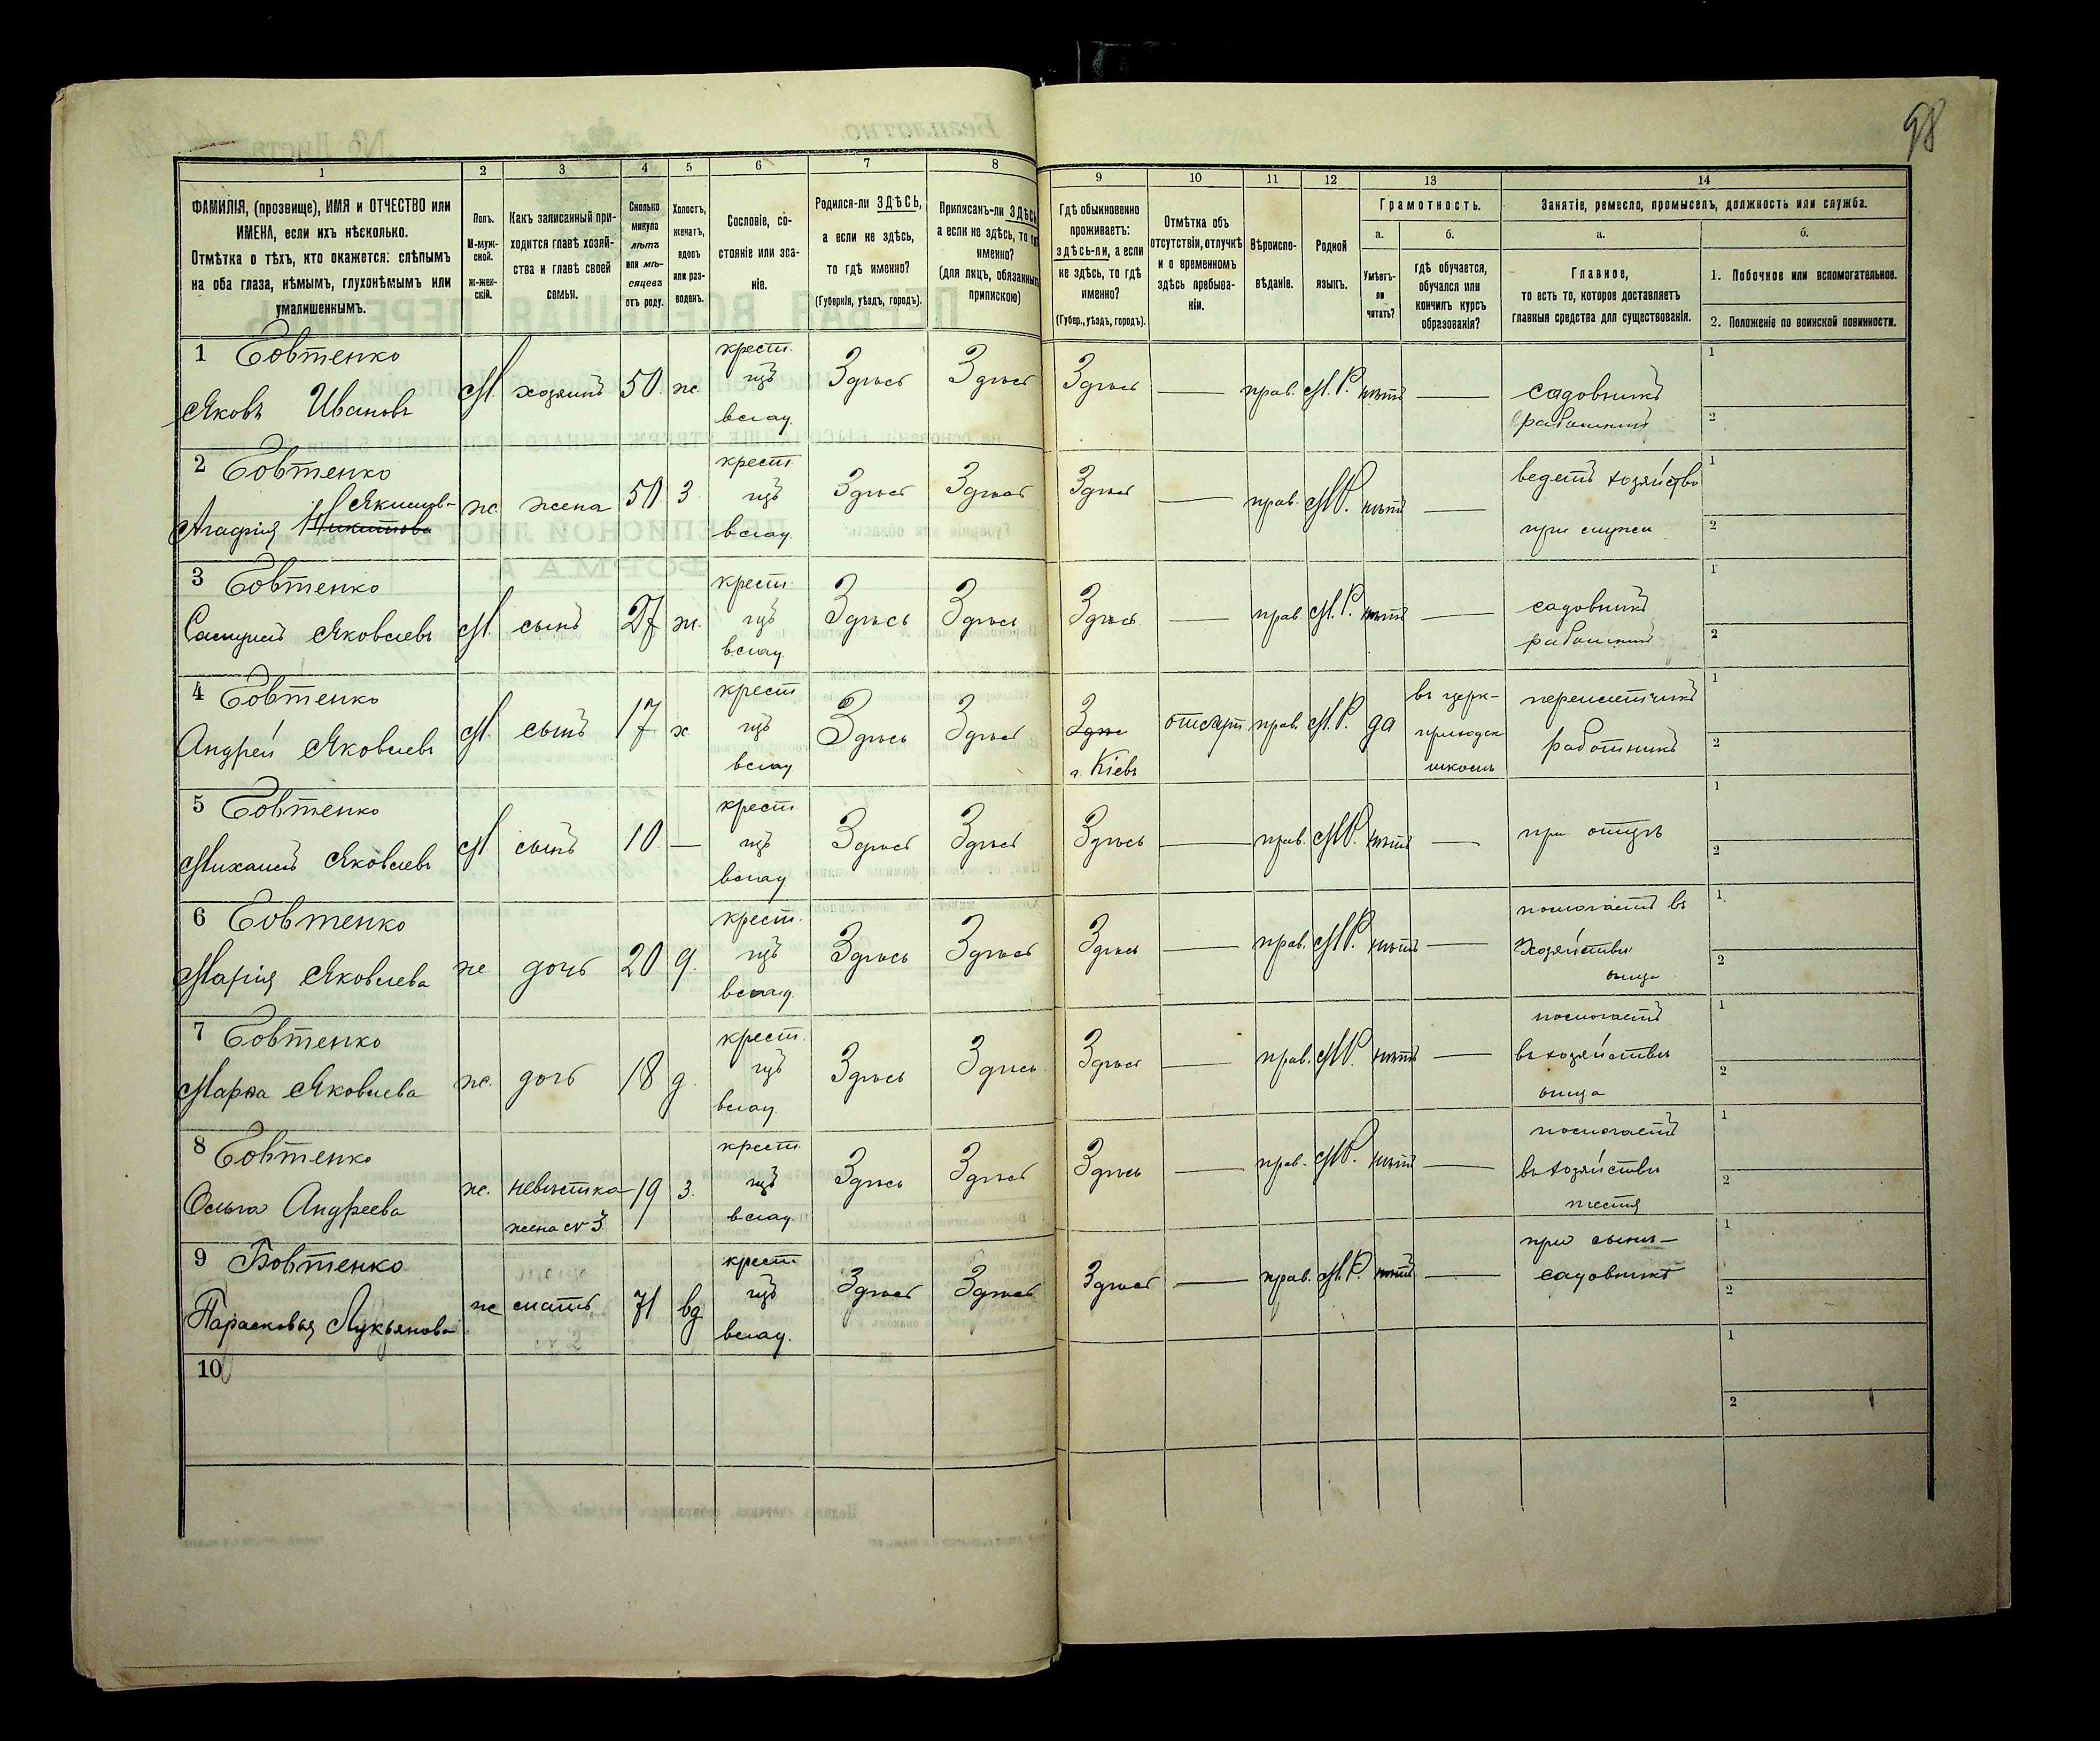 98
1 2 3 4 5 6 7 8 9 10 11 12 13 14
ФАМИЛІЯ, (прозвище), ИМЯ и ОТЧЕСТВО или
ИМЕНА, если ихъ нѣсколько.
Отмѣтка о тѣхъ, кто окажется: слѣпымъ
на оба глаза, нѣмымъ, глухонѣмымъ или
умалишеннымъ.
Полъ.
М-муж-
ской.
ж-жен-
скій.
Какъ записанный при-
ходится главѣ хозяй-
ства и главѣ своей
семьи.
Сколько
минуло
лѣтъ
или мѣ-
сяцевъ
отъ роду.
Холостъ,
женатъ,
вдовъ
или раз-
веденъ.
Сословіе, со-
стояніе или зва-
ніе.
Родился-ли ЗДѢСЬ,
а если не здѣсь,
то гдѣ именно?
(Губернія, уѣздъ, городъ).
Приписанъ-ли ЗДѢСЬ
а если не здѣсь, то гдѣ
именно?
(для лицъ, обязанныхъ
припискою)
Гдѣ обыкновенно
проживаетъ:
здѣсь-ли, а если
не здѣсь, то гдѣ
именно?
(Губер., уѣздъ, городъ).
Отмѣтка объ
отсутствіи, отлучкѣ
и о временномъ
здѣсь пребыва-
ніи.
Вѣроиспо-
вѣданіе.
Родной
языкъ.
Грамотность.
а.
Умѣетъ-
ли
читать?
б.
гдѣ обучается,
обучался или
кончилъ курсъ
образованія?
Занятіе, ремесло, промыселъ, должность или служба.
а.
Главное,
то есть то, которое доставляетъ
главныя средства для существованія.
б.
1. Побочное или вспомогательное.
2. Положеніе по воинской повинности.
1 Бовтенко
Яковъ Ивановъ
М. хозяинъ 50. ж.
крест.
изъ
влад.
Здѣсь Здѣсь Здѣсь — прав. М.Р. нѣтъ —
садовникъ
1
2
2 Бовтенко
Акимов-
Агафія Никитова
ж. жена 50 З.
крест.
изъ
влад.
Здѣсь Здѣсь Здѣсь — прав. МР. нѣтъ —
ведетъ хозяйство
при мужи
1
2
3 Бовтенко
Самуилъ Яковлевъ
М. сынъ 27 ж.
крест.
изъ
влад.
Здѣсь Здѣсь Здѣсь — прав. М.Р. нѣтъ —
садовникъ
1
2
4 Бовтенко
Андрей Яковлевъ
М. сынъ 17 х
крест
изъ
влад
Здѣсь Здѣсь
Здѣс
г. Кіевъ
прав. М.Р. да
въ церк-
приходск
школѣ
переплетчикъ
работникъ
1
2
5 Бовтенко
Михаилъ Яковлевъ
М сынъ 10 —
крест
изъ
влад
Здѣсь Здѣсь Здѣсь — прав. МР. нѣтъ —
при отцѣ
1
2
6 Бовтенко
Марія Яковлева
же дочь 20 д.
крест.
изъ
влад.
Здѣсь Здѣсь Здѣсь — прав. МР. нѣтъ —
помогаетъ въ
хозяйствѣ
отца
1.
2
7 Бовтенко
Марѳа Яковлева
ж. дочь 18 д.
крест.
изъ
влад.
Здѣсь Здѣсь Здѣсь — прав. МР. нѣтъ —
помогаетъ
въ хозяйствѣ
отца
1
2
8 Бовтенко
Ольга Андреева
ж. невѣстка 19 з.
жена № 3
крест.
изъ
влад.
Здѣсь Здѣсь Здѣсь — прав. МР. нѣтъ —
помогаетъ
въ хозяйствѣ
тестя
1
2
9 Бовтенко
Парасковья Лукьянова
же мать 71 вд
крест
изъ
влад.
Здѣсь Здѣсь Здѣсь — прав. М.Р. нѣтъ —
при сынѣ —
садовникѣ
1
2
10
1
2